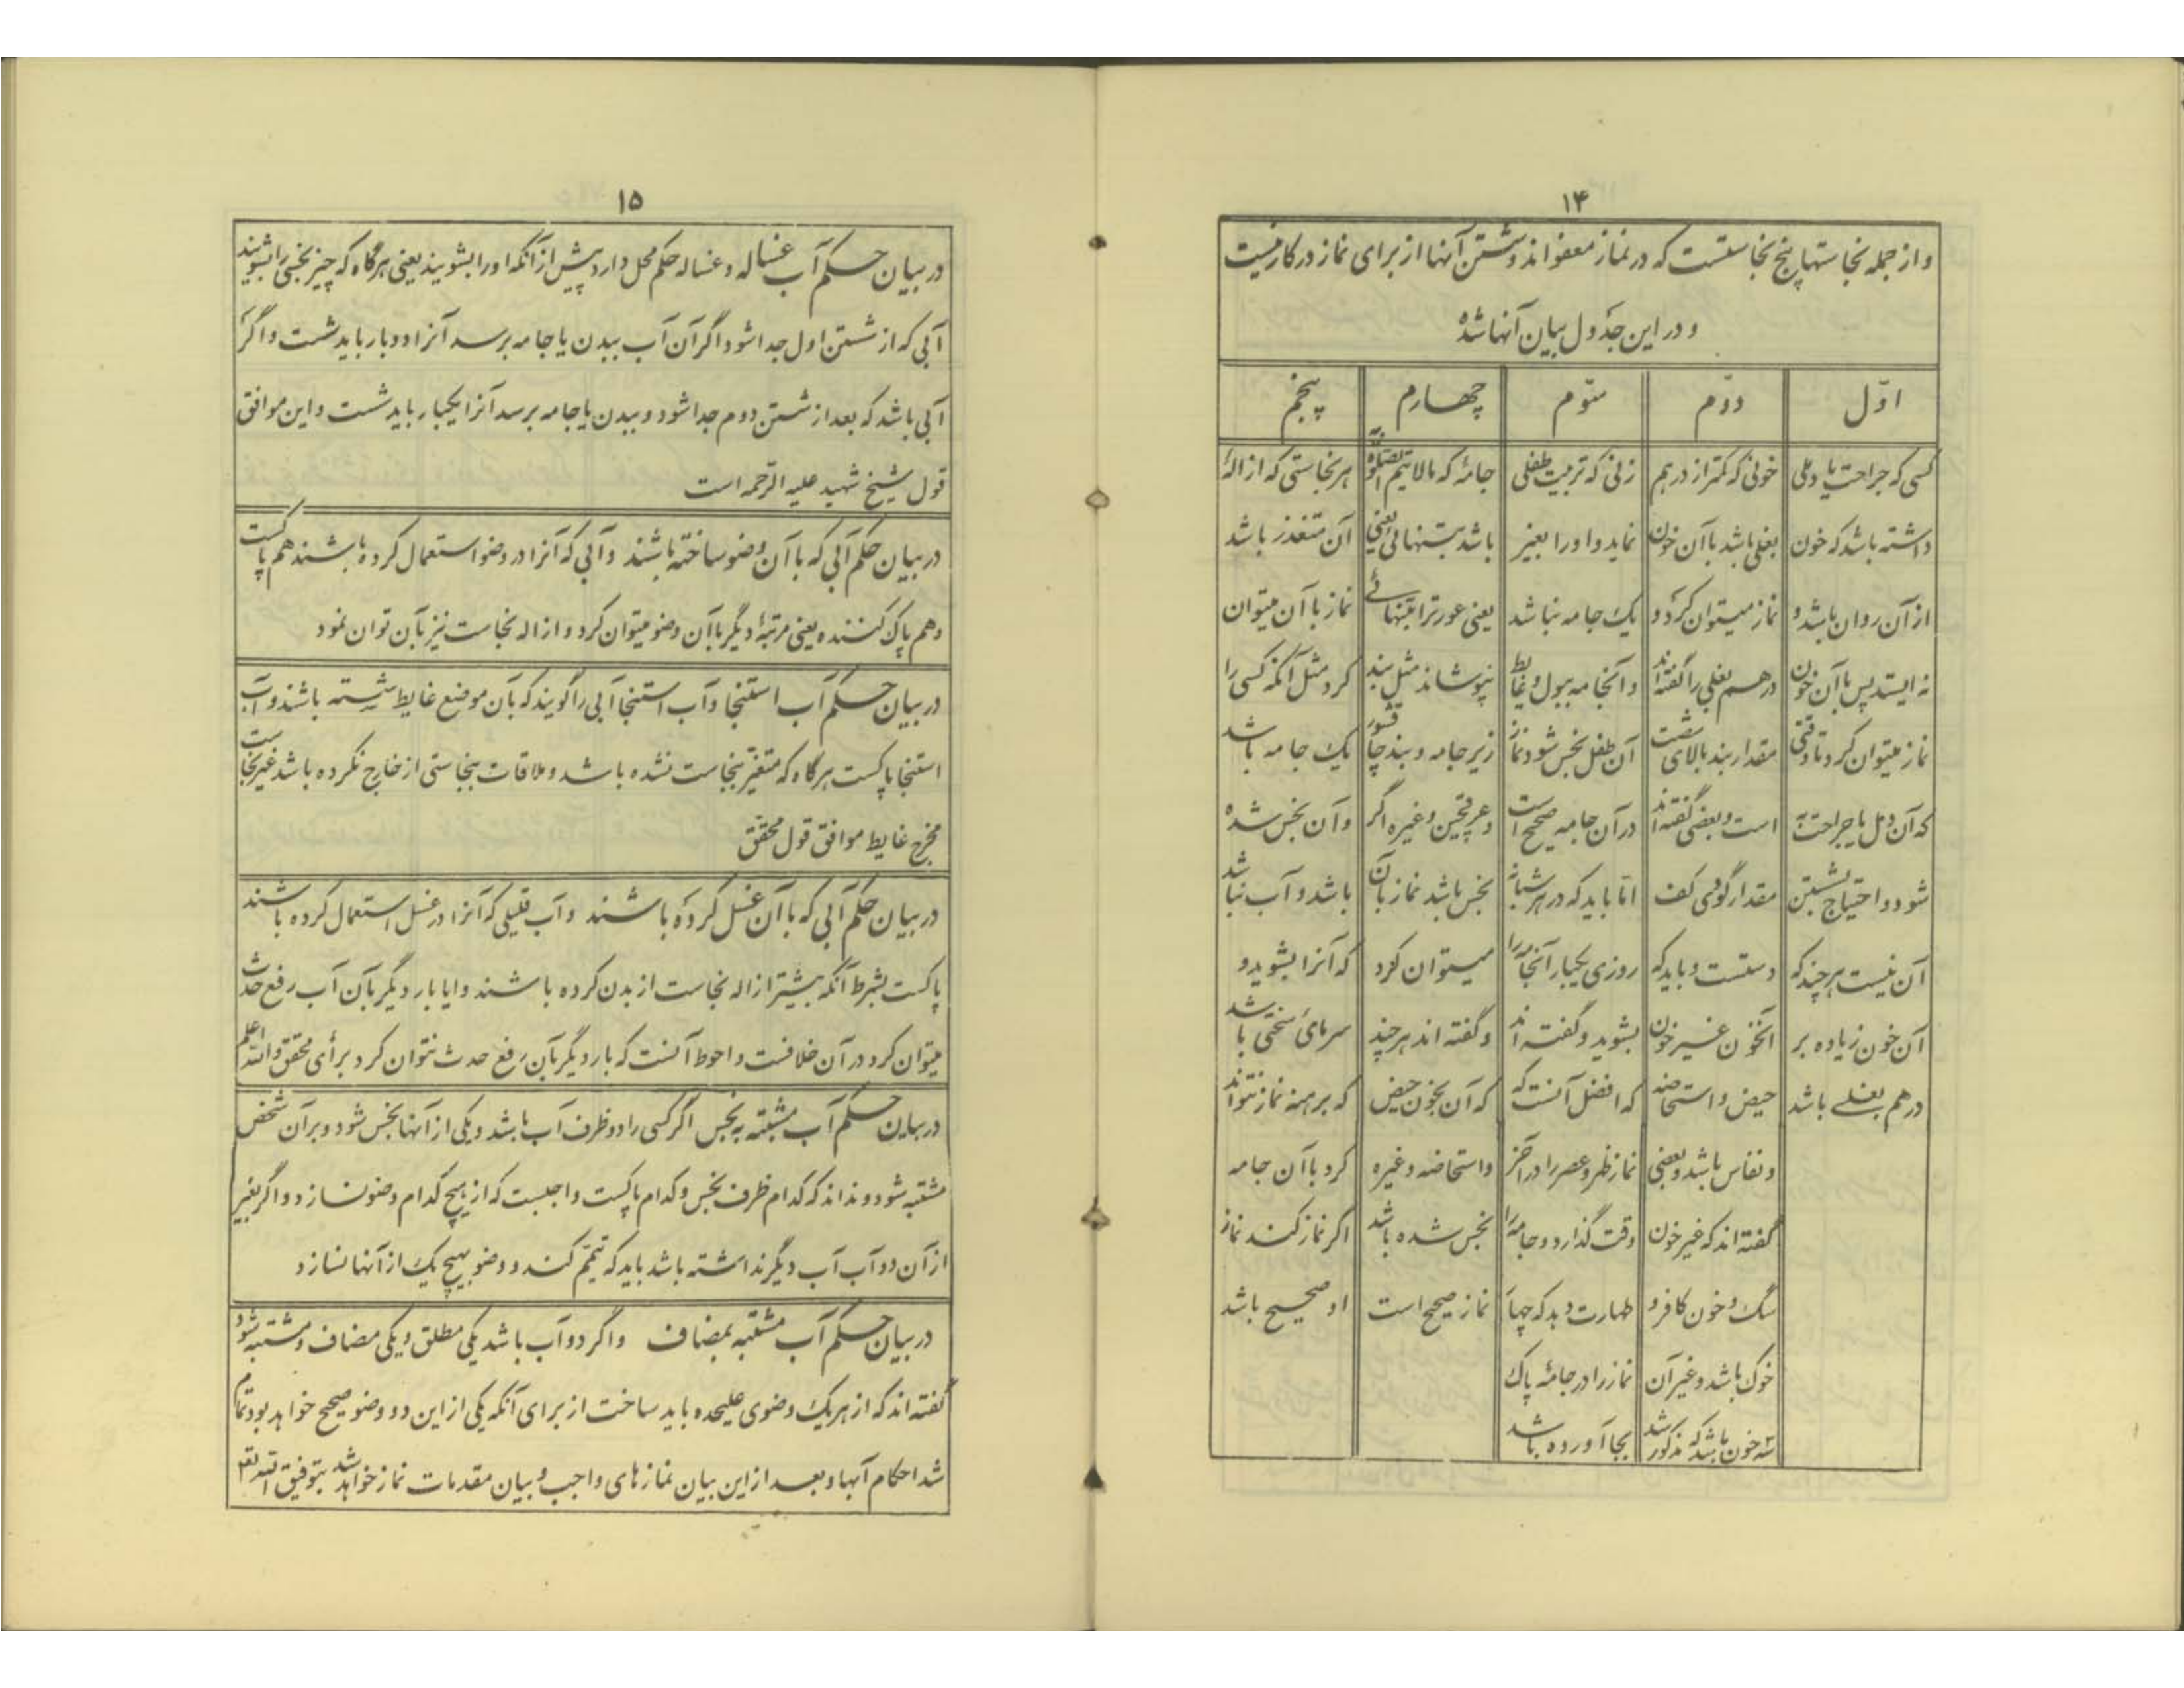 ۱۴
و از جمله نجاستها پنج نجاستست که در نماز معفو اند و شستن آنها از برای نماز در کار نیست
و در این جدول بیان آنها شده
اوّل
کسی که جراحت یا دملی
داشته باشد که خون
از آن روان باشد و
نه ایستد پس با آن خون
نماز میتوان کرد تا وقتی
که آن دمل یا جراحت به
شود و احتیاج بشستن
آن نیست هر چند که
آن خون زیاده بر
درهم بغلے باشد
دوّم
خونی که کمتر از درهم
بغلی باشد با آن خون
نماز میتوان کرد و
درهم بغلی را گفته اند
مقدار بند بالای شصت
است و بعضی گفته اند
مقدار گودی کف
دستست و باید که
آنخون غیر خون
حیض و استحاضه
و نفاس باشد و بعضی
گفته اند که غیر خون
سگ و خون کافر و
خوک باشد و غیر آن
سه خون باشد که مذکور شد
سّوم
زنی که تربیت طفلی
نماید و او را بغیر
یک جامه نباشد
و آنجامه ببول و غایط
آن طفل نجس شود نماز
در آن جامه صحیح است
امّا باید که در هر شبانه
روزی یکبار آنجامه را
بشوید و گفته اند
که افضل آنست که
نماز ظهر و عصر را در آخر
وقت گذارد و جامه را
طهارت دهد که چهار
نماز را در جامهٔ پاک
بجا آورده باشد
چهارم
جامهٔ که مالا یتم الصلوة
باشد بتنهائی یعنی
یعنی عورت را بتنهائے
نپوشاند مثل بند
زیر جامه و بند چاقشور
و عرقچین و غیره اگر
نجس باشد نماز بآن
میتوان کرد
و گفته اند هر چند
که آن بخون حیض
و استحاضه و غیره
نجس شده باشد
نماز صحیح است
پنجم
هر نجاستی که ازالهٔ
آن متعذر باشد
نماز با آن میتوان
کرد مثل آنکه کسی را
یک جامه باشد
و آن نجس شده
باشد و آب نباشد
که آنرا بشوید و
سرمای سختی باشد
که برهنه نماز نتواند
کرد با آن جامه
اگر نماز کند نماز
او صحیح باشد
۱۵
در بیان حکم آب غساله و غساله حکم محل دارد پیش از آنکه او را بشویند یعنی هر گاه که چیز نجسی را بشویند
آبی که از شستن اول جدا شود اگر آن آب ببدن یا جامه برسد آنرا دو بار باید شست و اگر
آبی باشد که بعد از شستن دوم جدا شود و ببدن یا جامه برسد آنرا یکبار باید شست و این موافق
قول شیخ شهید علیه الرّحمه است
در بیان حکم آبی که با آن وضو ساخته باشند و آبی که آنرا در وضو استعمال کرده باشند هم پاکست
و هم پاک کننده یعنی مرتبهٔ دیگر با آن وضو میتوان کرد و ازاله نجاست نیز بآن توان نمود
در بیان حکم آب استنجا و آب استنجا آبی را گویند که بآن موضع غایط شسته باشند و آب
استنجا پاکست هر گاه که متغیّر بنجاست نشده باشد و ملاقات بنجاستی از خارج نکرده باشد غیر نجاست
مخرج غایط موافق قول محقق
در بیان حکم آبی که با آن غسل کرده باشند و آب قلیلی که آنرا در غسل استعمال کرده باشند
پاکست بشرط آنکه پیشتر ازاله نجاست از بدن کرده باشند و ایا بار دیگر بآن آب رفع حدث
میتوان کرد در آن خلافست و احوط آنست که بار دیگر بآن رفع حدث نتوان کرد برأی محقق والله اعلم
در بیان حکم آب مشتبه به نجس اگر کسی را دو ظرف آب باشد و یکی از آنها نجس شود و بر آن شخص
مشتبه شود و نداند که کدام ظرف نجس و کدام پاکست واجبست که از هیچ کدام وضو نسازد و اگر بغیر
از آن دو آب آب دیگر نداشته باشد باید که تیمّم کند و وضو بهیچ یک از آنها نسازد
در بیان حکم آب مشتبه بمضاف و اگر دو آب باشد یکی مطلق و یکی مضاف و مشتبه شود
گفته اند که از هر یک وضوی علیحده باید ساخت از برای آنکه یکی از این دو وضو صحیح خواهد بود تمام
شد احکام آبها و بعد از این بیان نمازهای واجب و بیان مقدمات نماز خواهد شد بتوفیق الله تعم